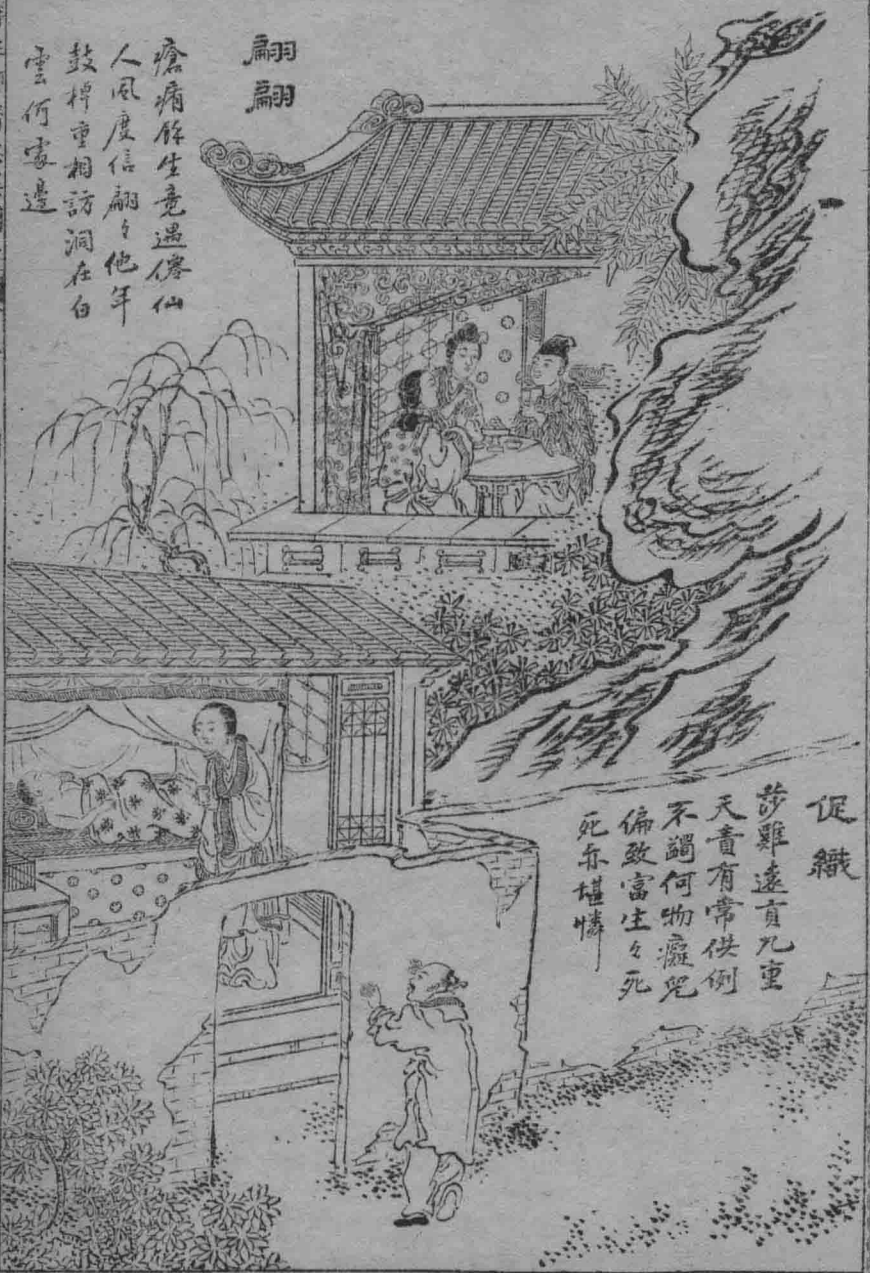 翩翩
瘡痏餘生竟遇僊仙
人風度信翩々他年
鼓棹重相訪洞在白
雲何處邊
促織
莎雞遠貢九重
天責有常供例
不蠲何物癡兒
偏致富生々死
死亦堪憐